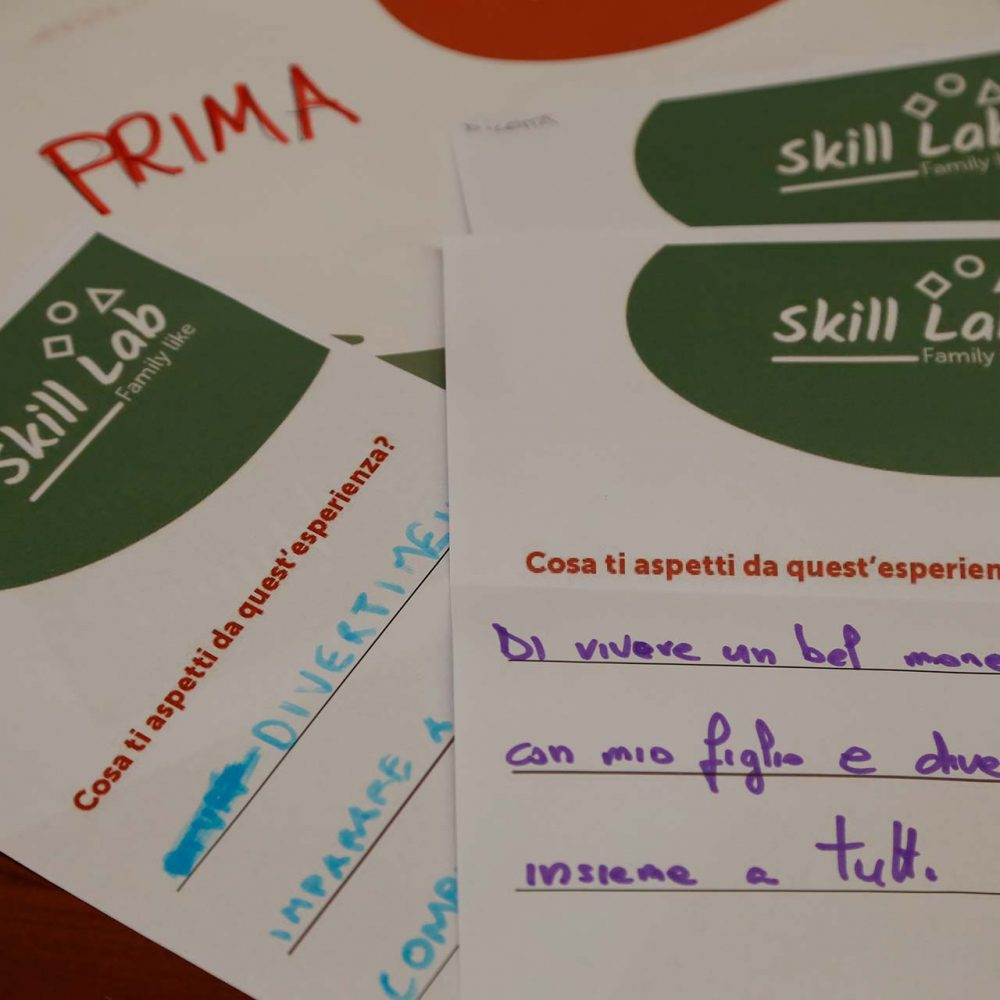 PRIMA
Skill Lab
Family
Skill Lab
Family like
Cosa ti aspetti da quest'esperienza?
DIVERTIME
IMPARARE A
COMP
Skill La
Family
Cosa ti aspetti da quest'esperien
DI vivere un bel mome
con mio figlio e dive
insieme a tutti.